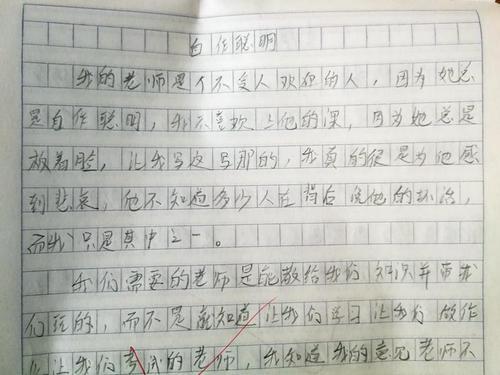 自作聪明
我的老师是个不受人欢迎的人，因为她总
是自作聪明，我不喜欢上他的课，因为她总是
放着脸，让我写这写那的，我真的很是为他感
到悲哀，他不知道多少人在背后说他的坏话，
而我只是其中之一。
我们需要的老师是能教给我们知识并带我
们玩的，而不是就知道让我们学习让我们做作
让我们考试的老师，我知道我的意见老师不